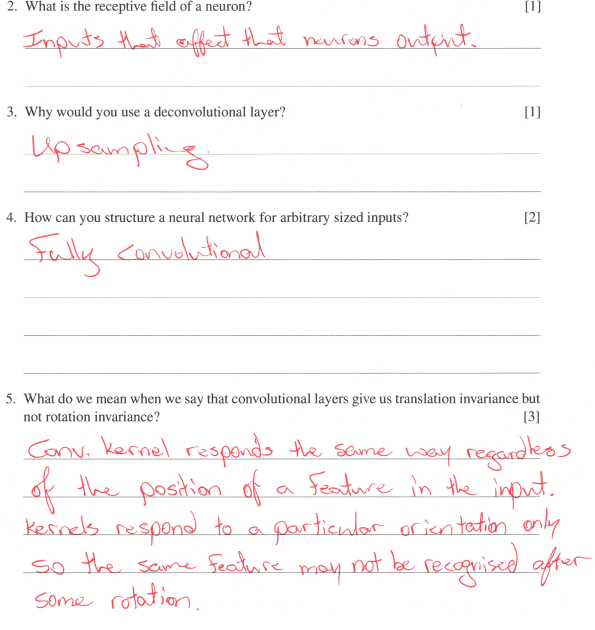 2. What is the receptive field of a neuron? [1]
Inputs that affect that neurons output.
3. Why would you use a deconvolutional layer? [1]
Upsampling.
4. How can you structure a neural network for arbitrary sized inputs? [2]
Fully convolutional
5. What do we mean when we say that convolutional layers give us translation invariance but
not rotation invariance? [3]
Conv. kernel responds the same way regardless
of the position of a feature in the input.
Kernels respond to a particular orientation only
so the same feature may not be recognised after
some rotation.